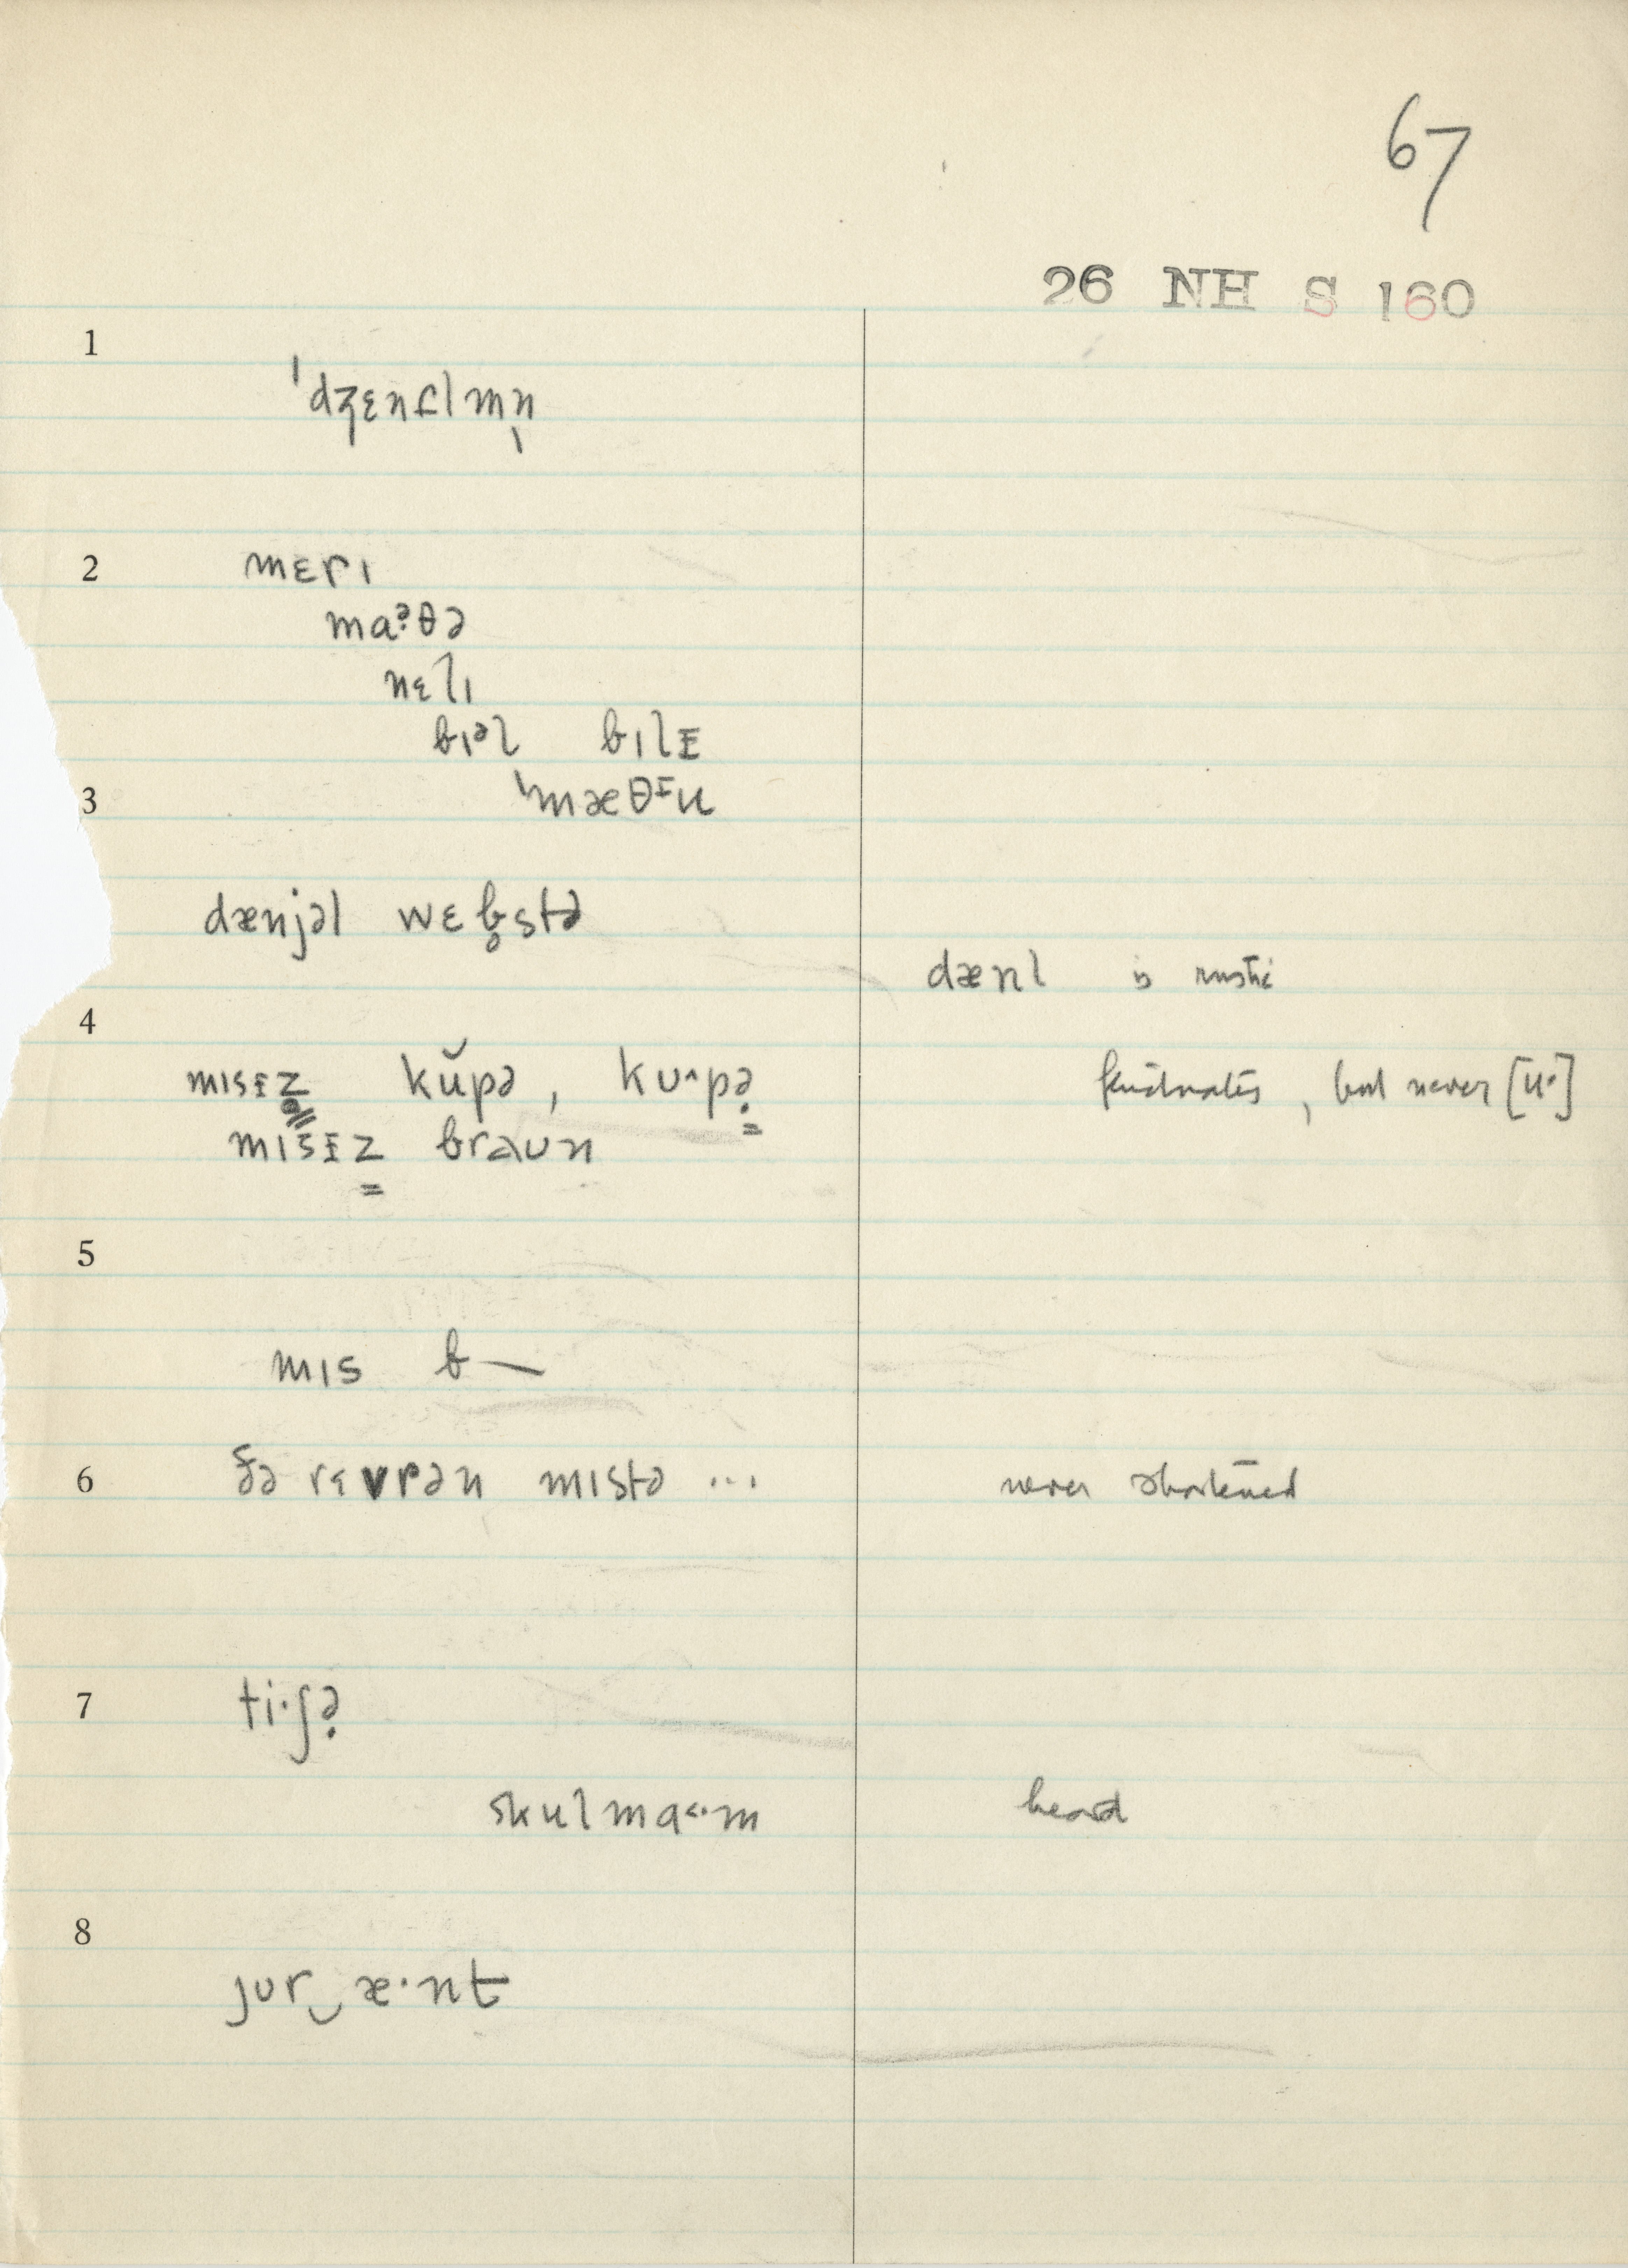 67
26 NH S 160
1
ˈdʒɛntlmn̩
2 mɛrɪ
maᵊ̣θə
nɛlɪ
bɪᵊl bɪlɪ̵
3 ˈmæθᶦ̵u
dænjəl wɛb̥stə
dænl is rustic
4
mɪsɪ̵z kŭpə, kuˆpə̣ fluctuates, but never [u·]
mɪsɪ̵z braun
5
mɪs b—
6 ðə rɛvrən mɪstə ... never shortened
7 ti·ʃə̣
skulma˂·m heard
8
jʊr‿æ·nt